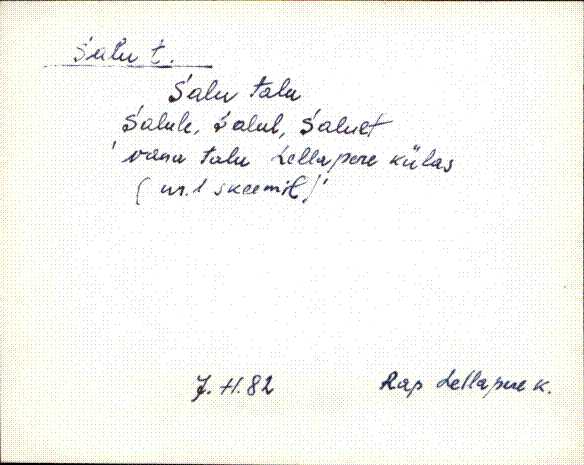 Śalu t.
Śalu talu
Śalule, śalul, śalult
' vana talu Lellapere külas
(nr. 1 skeemil)'
J. H. 82 Rap Lellapere k.